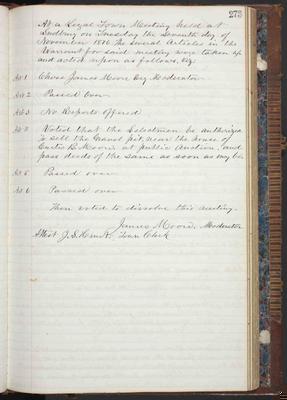 273
At a Legal Town Meeting held at
Sudbury on Tuesday the Seventh day of
November 1876 the several Articles in the
Warrant for said meeting were taken up
and acted upon as follows, viz.
Art 1 Chose James Moore Esq Moderator
Art 2 Passed Over
Art 3 No Reports offered
Voted that the Selectmen be authorized
to sell the Gravel pit, near the house of
Curtis B. Moore, at public Auction, and
pass deeds of the Same as soon as may be
Art 5 Passed over
Art 6 Passed over
Then voted to dissolve this meeting.
James Moore, Moderator
Attest J. S. Hunt, Town Clerk